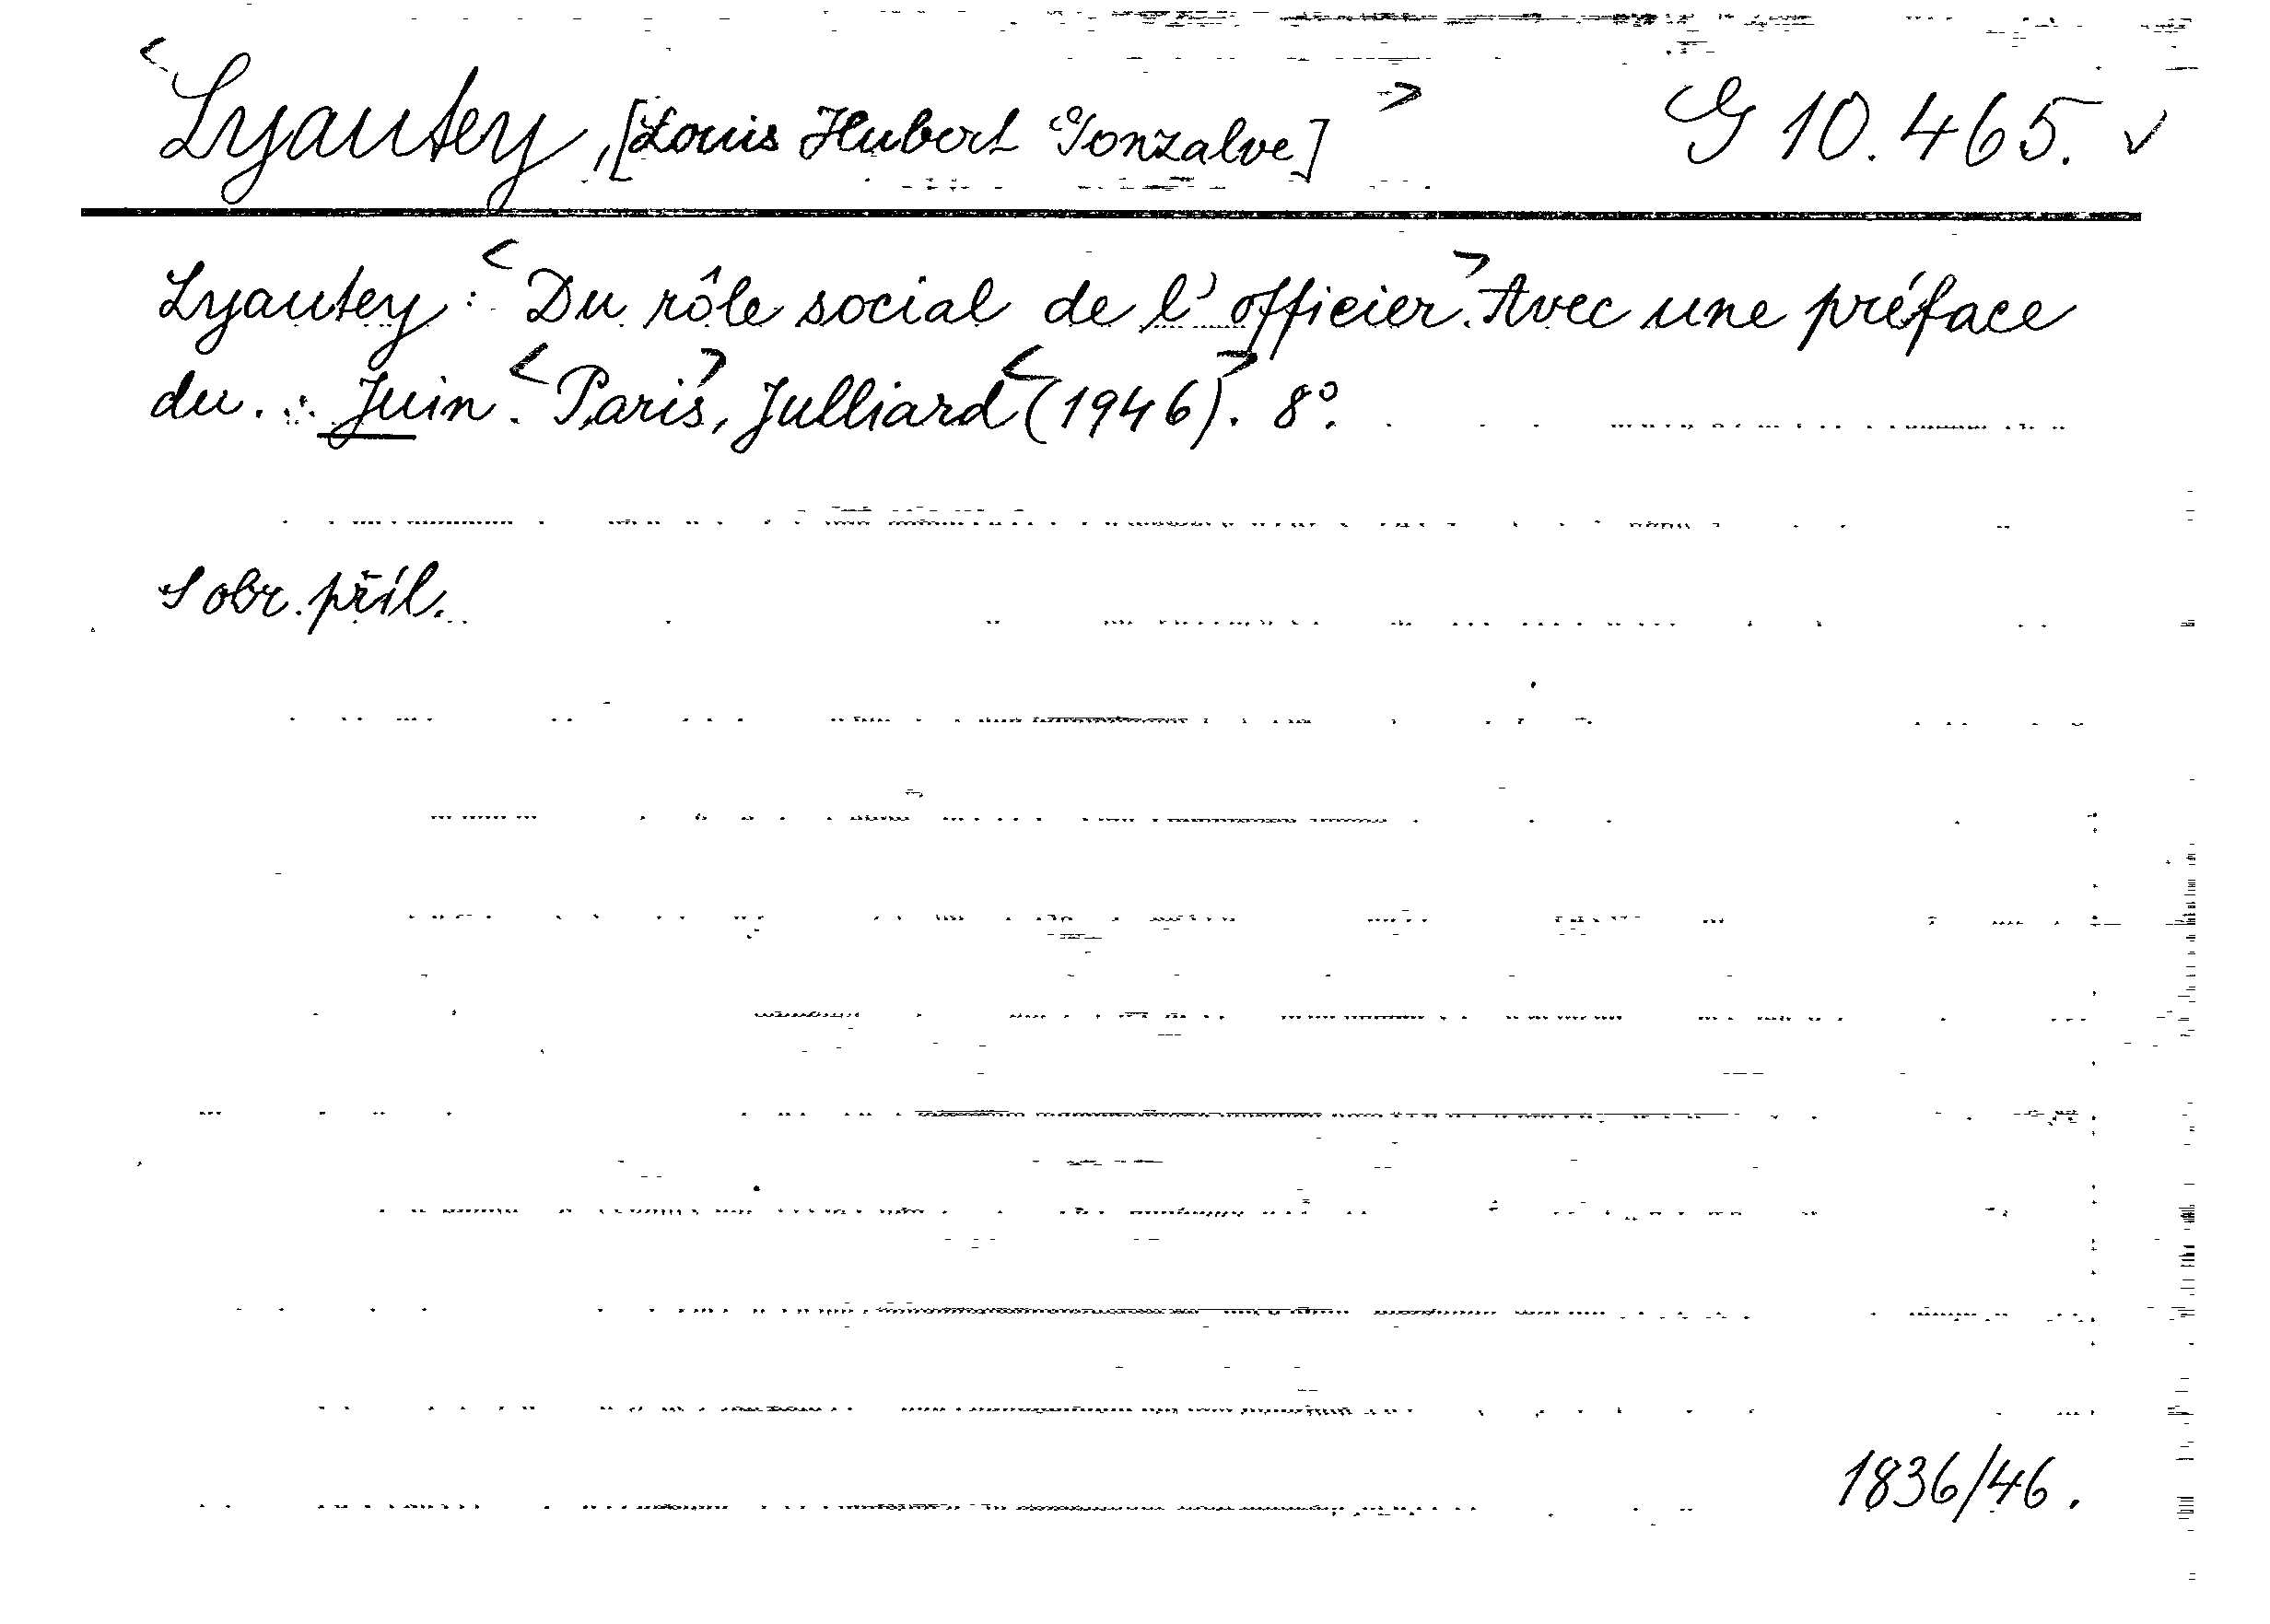 <Lyautey, [Louis Hubert Gonzalve]> G 10.465. ✓
Lyautey: <Du rôle social de l'officier.> Avec une préface
du... Juin. <Paris>, Julliard <(1946)>. 8°.
S obr. příl.
1836/46.